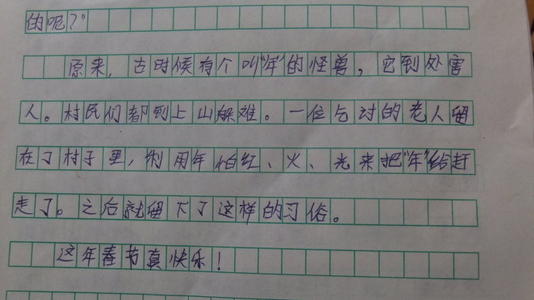 的呢?”
原来,古时候有个叫“年”的怪兽,它到处害
人。村民们都到上山躲难。一位乞讨的老人留
在了村子里,利用年怕红、火、光来把“年”给赶
走了。之后就留下了这样的习俗。
这年春节真快乐!